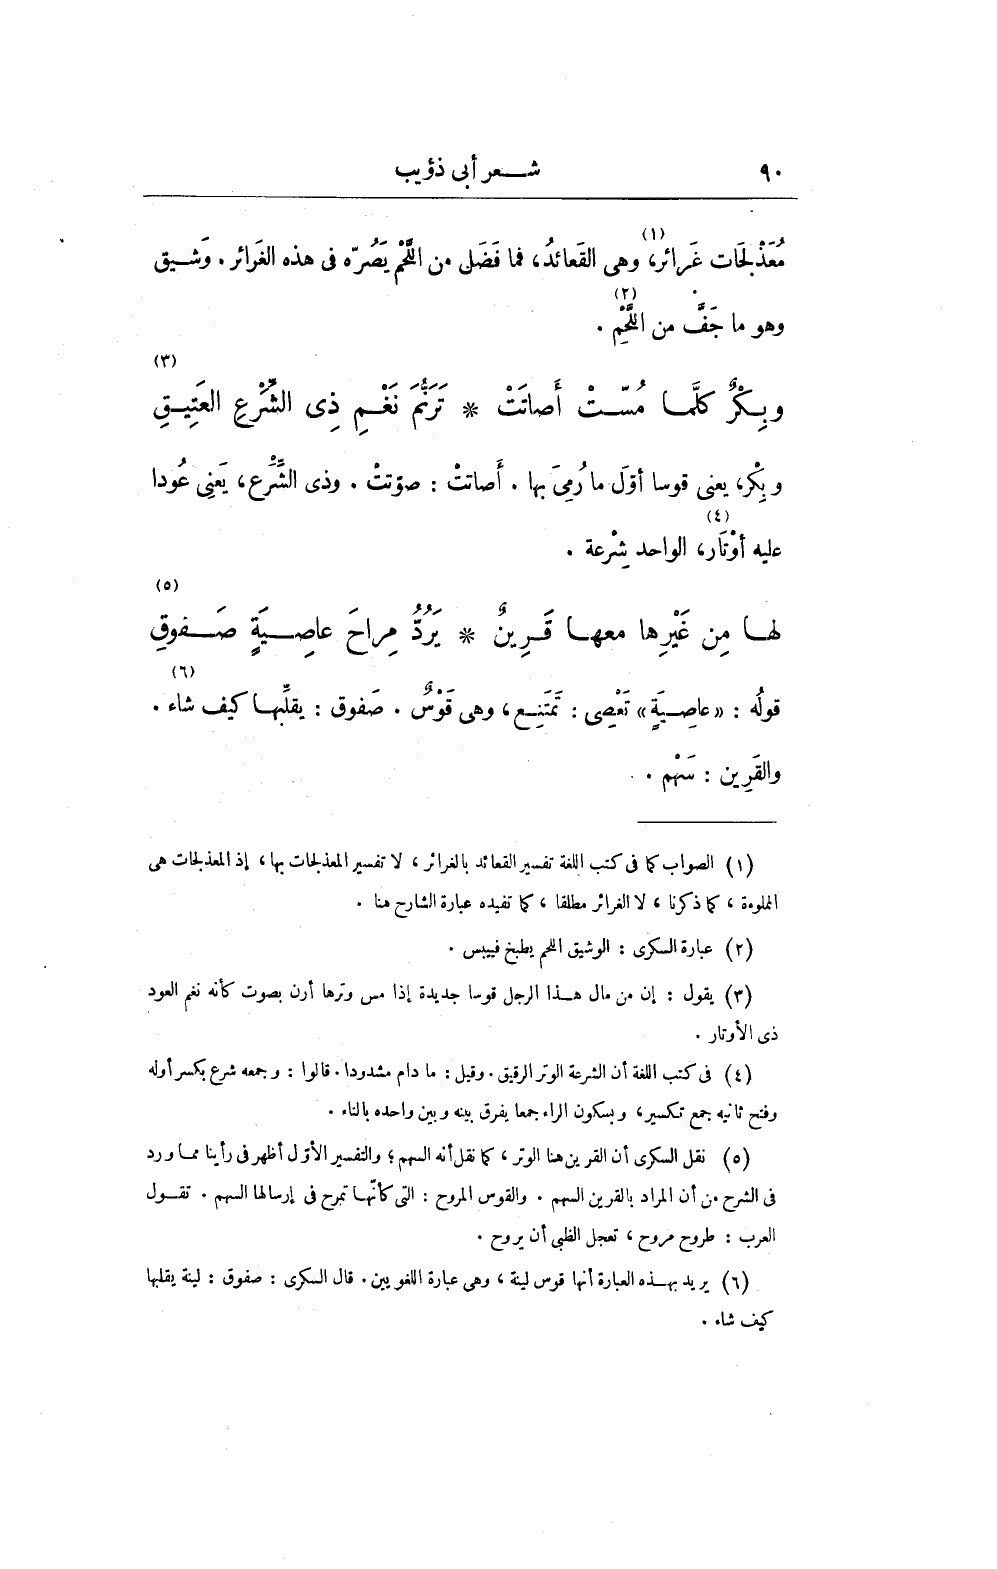 ٩٠ شعر أبى ذؤيب
مُعَذْلَجَات غَرائر، وهى القَعائدُ، فما فَضَل من اللَّحْم يَصُرّه فى هذه الغَرائر . وَشيق (١)
وهو ما جَفَّ من اللَّحْمِ . (٢)
وبِكْرٌ كلَّما مُسّتْ أَصاتَتْ * تَرَنُّمَ نَغْمِ ذِى الشَّرْعِ العَتِيقِ (٣)
وبِكْر، يعنى قوسا أوّلَ ما رُمِىَ بها . أَصاتتْ : صوّتتْ . وذى الشَّرْع، يَعنِى عُودا
عليه أوْتَار، الواحد شِرْعة . (٤)
لها مِن غَيْرِها معها قَرِينٌ * يَرُدُّ مِراحَ عاصِيَةٍ صَفوقِ (٥)
قولُه : «عاصِيَةٍ» تَعْصِى : تَمْتَنِع، وهى قَوْسٌ . صَفوق : يقلِّبها كيف شاء . (٦)
والقَرِين : سَهْم .
(١) الصواب كما فى كتب اللغة تفسير القعائد بالغرائر ، لا تفسير المعذلجات بها ، إذ المعذلجات هى
المملوءة ، كما ذكرنا ، لا الغرائر مطلقا ، كما تفيده عبارة الشارح هنا .
(٢) عبارة السكرى : الوشيق اللحم يطبخ فييبس .
(٣) يقول : إن من مال هذا الرجل قوسا جديدة إذا مس وترها أرن بصوت كأنه نغم العود
ذى الأوتار .
(٤) فى كتب اللغة أن الشرعة الوتر الرقيق . وقيل : ما دام مشدودا . قالوا : وجمعه شرع بكسر أوله
وفتح ثانيه جمع تكسير، وبسكون الراء جمعا يفرق بينه وبين واحده بالتاء .
(٥) نقل السكرى أن القرين هنا الوتر ، كما نقل أنه السهم ؛ والتفسير الأوّل أظهر فى رأينا مما ورد
فى الشرح من أن المراد بالقرين السهم . والقوس المروح : التى كأنّها تمرح فى إرسالها السهم . تقول
العرب : طروح مروح ، تعجل الظبى أن يروح .
(٦) يريد بهذه العبارة أنها قوس لينة ، وهى عبارة اللغويين . قال السكرى : صفوق : لينة يقلبها
كيف شاء .